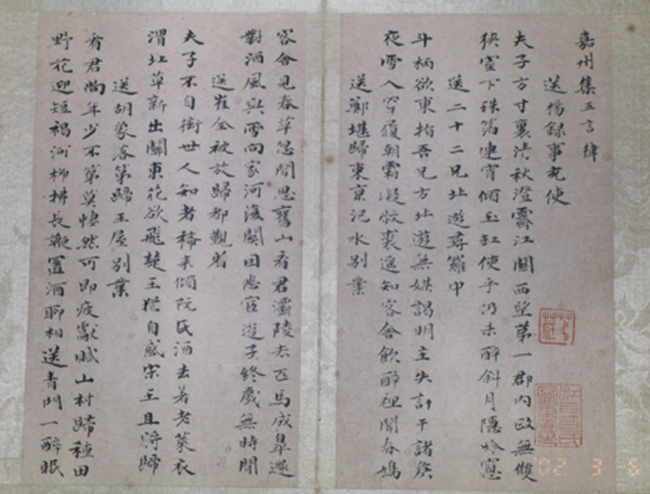 嘉州集五言律
送楊錄事充使
夫子方寸裏清秋澄霽江關西望第一郡內政無雙
狹室下珠箔連宵傾玉缸使乎仍未醉斜月隱吟窻
送二十二兄北遊尋羅中
斗柄欲東指吾兄方北遊無媒謁明主失計干諸侯
夜雪入穿履朝霜凝敝裘遙知客舍飲醉裡聞春鳩
送鄭堪歸東京汜水別業
客舍見春草忽聞思舊山看君灞陵去匹馬成皐還
對酒風與雪向家河復關因悲宦遊子終歲無時閒
送崔全被放歸都覲省
夫子不自衒世人知者稀來傾阮氏酒去著老萊衣
渭北草新出關東花欲飛楚王猶自惑宋玉且將歸
送胡象落第歸王屋別業
看君尚年少不第莫悽然可即疲獻賦山村歸種田
野花迎短褐河柳拂長鞭置酒聊相送青門一醉眠
'02 3 6